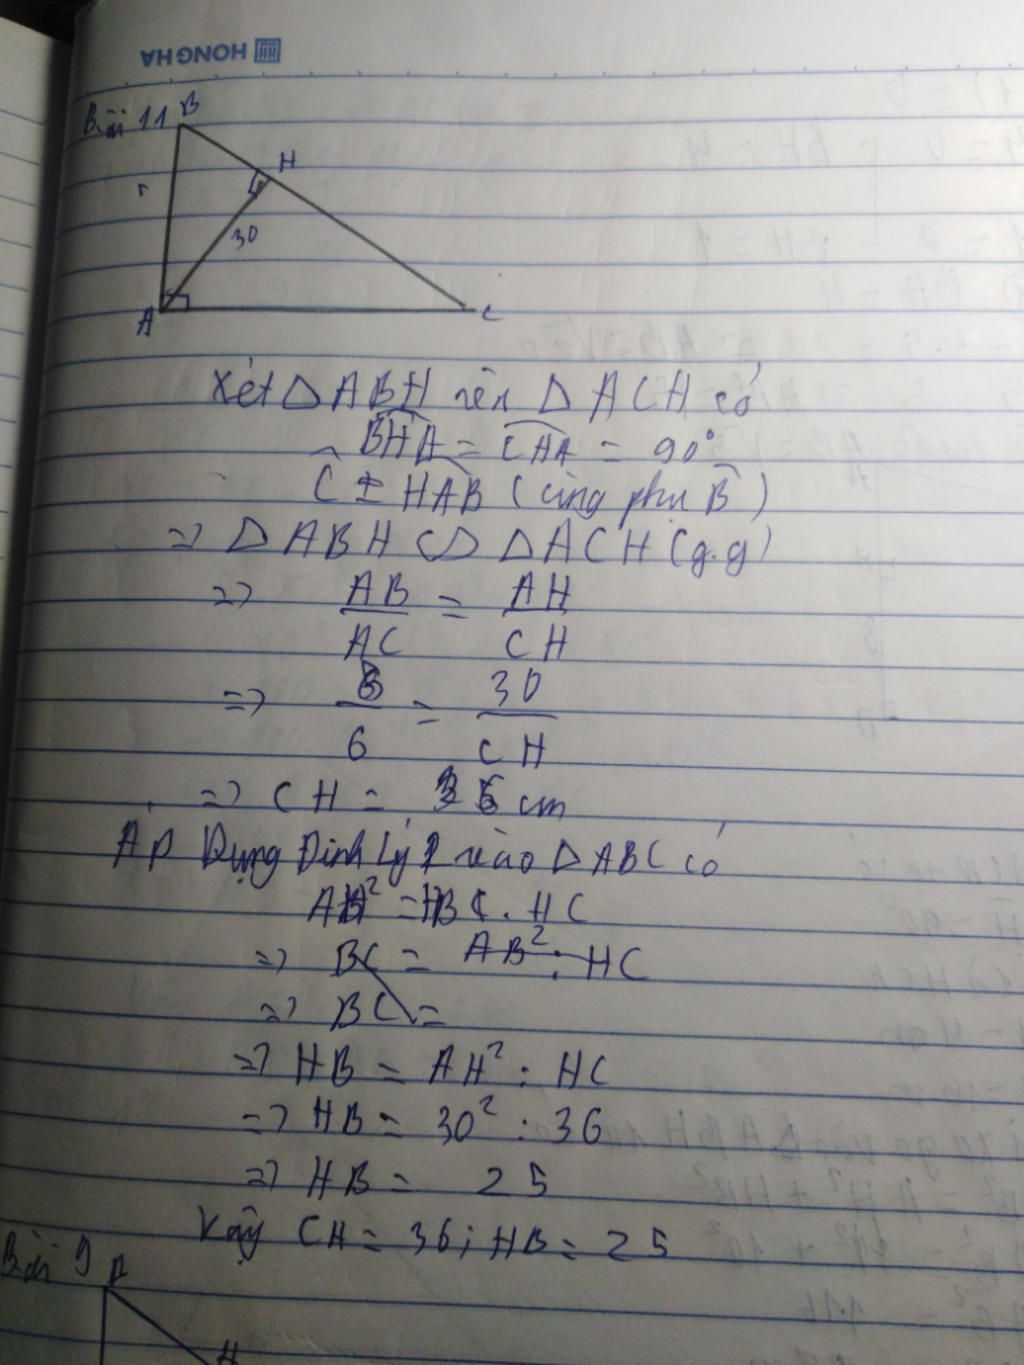 HONG HA
Bài 11
B
H
30
A
C
Xét △ABH và △ACH có
BHA = CHA = 90°
C = HAB (cùng phụ B)
=> △ABH ∽ △ACH (g.g)
=> AB/AC = AH/CH
=> 5/6 = 30/CH
=> CH = 36 cm
Áp Dụng Định Lý 2 vào △ABC có
AH² = HB . HC
=> BC = AB² : HC
=> BC =
=> HB = AH² : HC
=> HB = 30² : 36
=> HB = 25
Vậy CH = 36 ; HB = 25
Bài 9
A
H